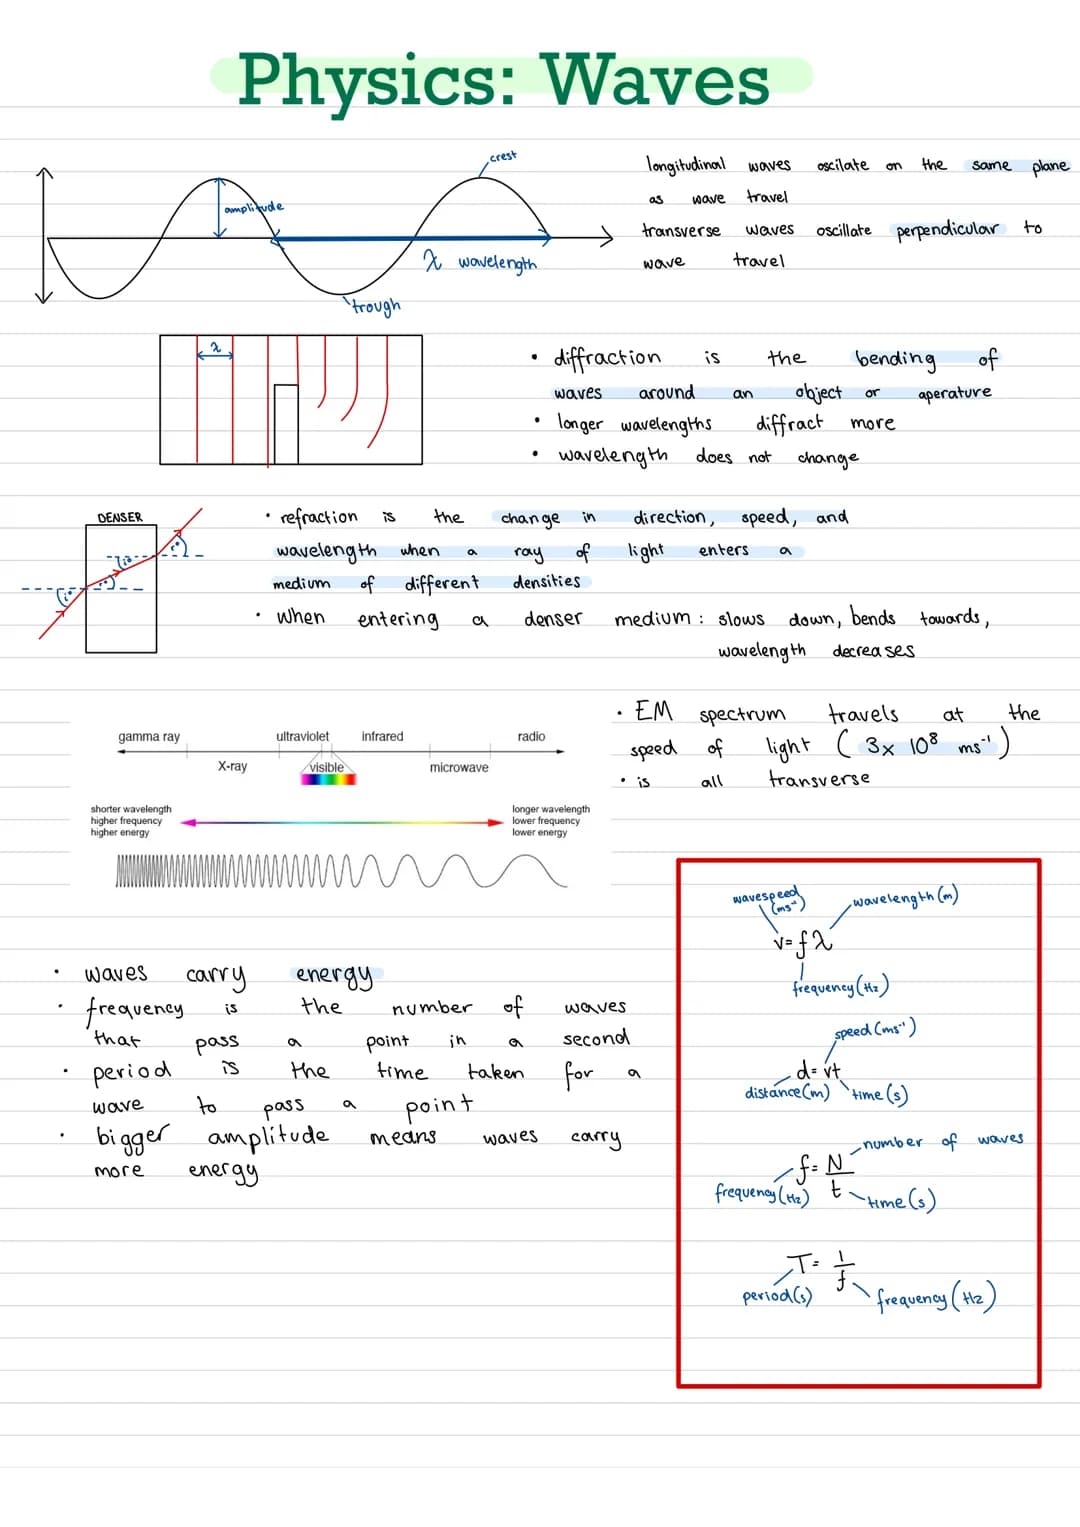 Physics: Waves
crest
amplitude
λ wavelength
trough
longitudinal waves oscilate on the same plane
as wave travel
transverse waves oscillate perpendicular to
wave travel
λ
• diffraction is the bending of
waves around an object or aperature
• longer wavelengths diffract more
• wavelength does not change
DENSER
i°
r°
i°
r°
• refraction is the change in direction, speed, and
wavelength when a ray of light enters a
medium of different densities
• when entering a denser medium: slows down, bends towards,
wavelength decreases
gamma ray ultraviolet infrared radio
X-ray visible microwave
shorter wavelength
higher frequency
higher energy
longer wavelength
lower frequency
lower energy
• EM spectrum travels at the
speed of light (3x 10⁸ ms⁻¹)
• is all transverse
• waves carry energy
• frequency is the number of waves
that pass a point in a second
• period is the time taken for a
wave to pass a point
• bigger amplitude means waves carry
more energy
wavespeed
(ms⁻¹)
wavelength (m)
v=fλ
frequency (Hz)
speed (ms⁻¹)
d=vt
distance(m) time (s)
number of waves
f= N/t
frequency (Hz) time (s)
T= 1/f
period(s) frequency (Hz)